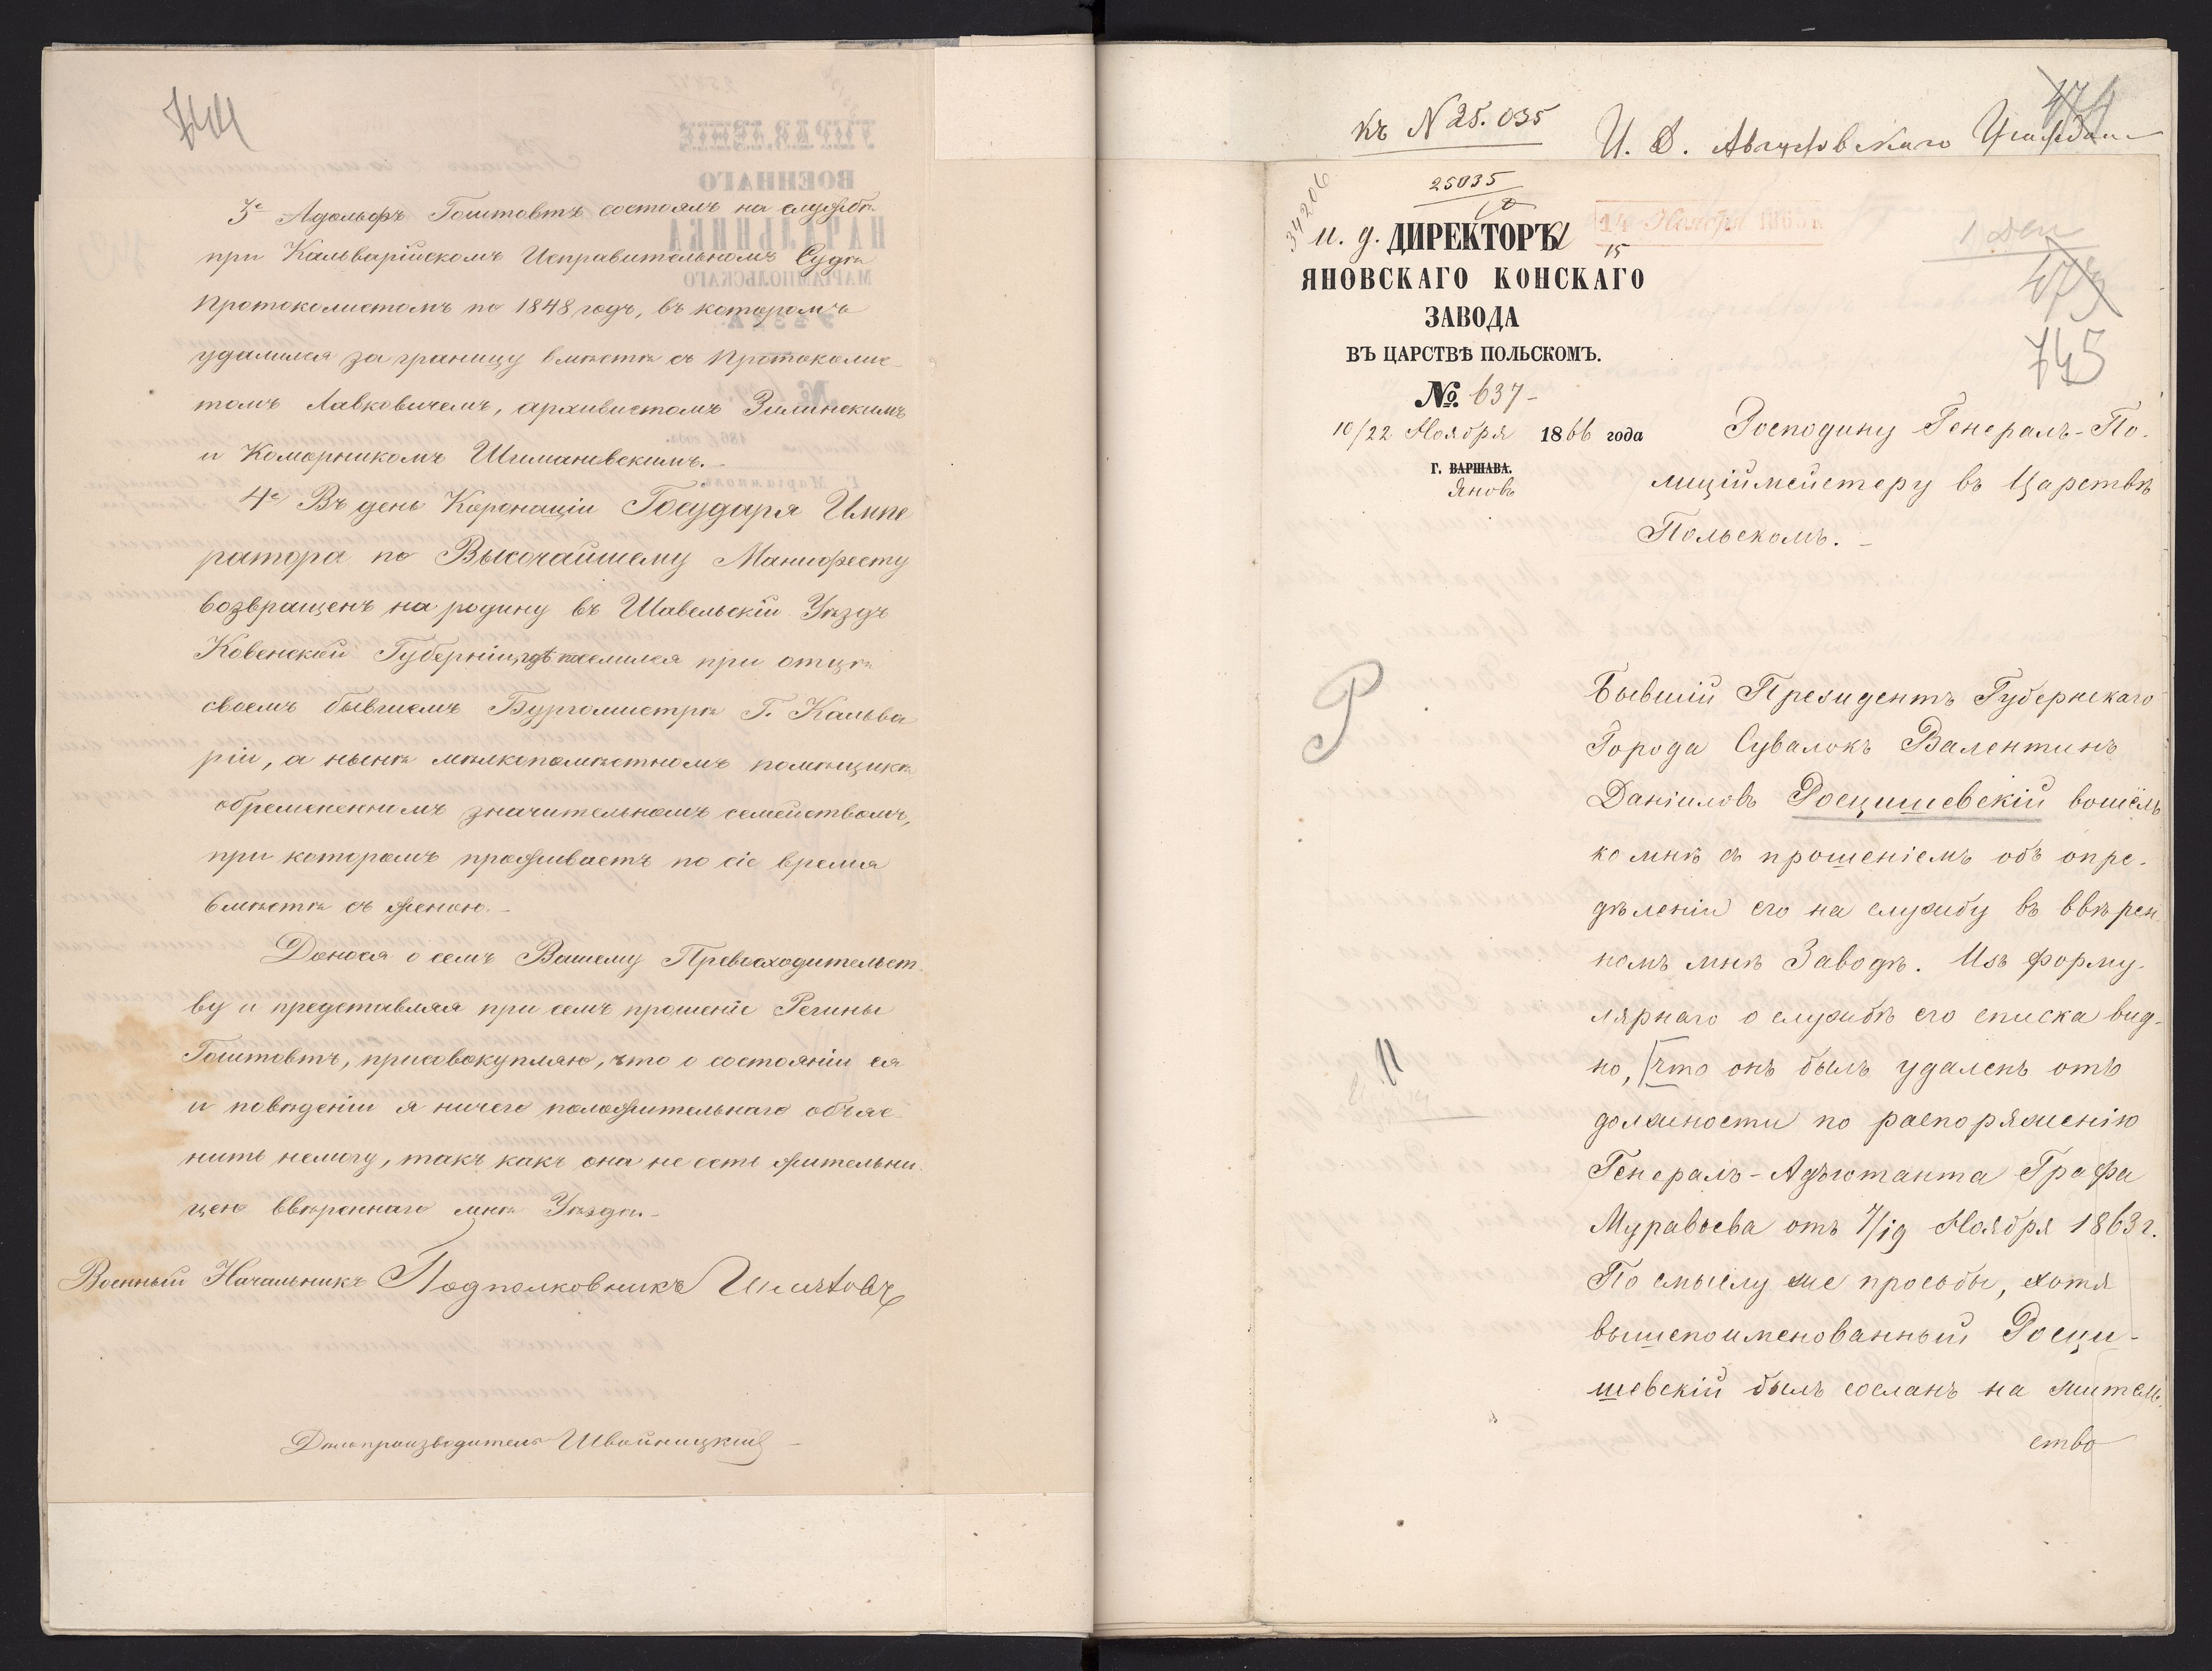 744
3е Адольфъ Гоштовтъ состоялъ на службѣ
при Кальварійскомъ Исправительномъ Судѣ
Протоколистомъ по 1848 годъ, въ которомъ
удалился за границу вмѣстѣ съ Протоколис-
томъ Лавковичемъ, архивистомъ Зилинскимъ
и Коморникомъ Шимановскимъ.
4е Въ день Коронаціи Государя Импе
ратора по Высочайшему Манифесту
возвращенъ на родину въ Шавельскій Уѣздъ
Ковенской Губерніи, гдѣ поселился при отцѣ
своемъ бывшемъ Бургомистрѣ Г. Кальва
ріи, а нынѣ мѣлкопомѣстномъ помѣщикѣ
обремененномъ значительномъ семействомъ,
при которомъ проживаетъ по сіе время
вмѣстѣ съ женою.
Донося о семъ Вашему Превосходительст
ву и представляя при семъ прошеніе Регины
Гоштовтъ, присовокупляю, что о состояніи ея
и поведеніи я ничего положительнаго объяс
нить немогу, такъ какъ она не есть жительни
цею ввѣреннаго мнѣ Уѣзда.
Военный Начальникъ Подполковникъ
Дѣлопроизводитель Швойницкій
къ N 25.035
И. Д. Августовскаго
474
25035
34206
14 Ноября 186
15
1 Ден
473
745
и. д. ДИРЕКТОРЪ
ЯНОВСКАГО КОНСКАГО
ЗАВОДА
ВЪ ЦАРСТВѢ ПОЛЬСКОМЪ.
№ 637-
10/22 Ноября 1866 года
Г. ВАРШАВА.
Яновъ
Господину Генералъ-По-
лиціймейстеру въ Царствѣ
Польскомъ.
Р
Бывшій Президентъ Губернскаго
Города Сувалокъ Валентинъ
Даніиловъ Росцишевскій вошёлъ
ко мнѣ съ прошеніемъ объ опре-
дѣленіи его на службу въ ввѣрен
номъ мнѣ Заводѣ. Изъ форму-
лярнаго о службѣ его списка вид-
но, что онъ былъ удаленъ отъ
должности по распоряженію
Генералъ-Адъютанта Графа
Муравьева отъ 7/19 Ноября 1863 г.
По смыслу же просьбы, хотя
вышепоименованный Росци-
шевскій былъ сосланъ на житель
ство